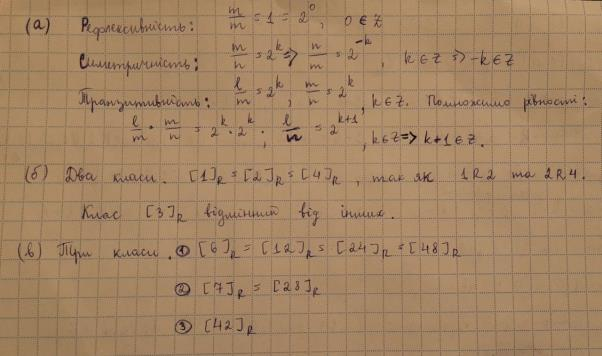 (а) Рефлексивність: m/m = 1 = 2^0, 0 ∈ Z
Симетричність: m/n = 2^k => n/m = 2^-k, k ∈ Z => -k ∈ Z
Транзитивність: l/m = 2^k, m/n = 2^k, k ∈ Z. Помножимо рівності:
l/m · m/n = 2^k · 2^k, l/n = 2^k+1, k ∈ Z => k+1 ∈ Z.
(б) Два класи. [1]R = [2]R = [4]R, так як 1R2 та 2R4.
Клас [3]R відмінний від інших.
(в) Три класи. ① [6]R = [12]R = [24]R = [48]R
② [7]R = [28]R
③ [42]R